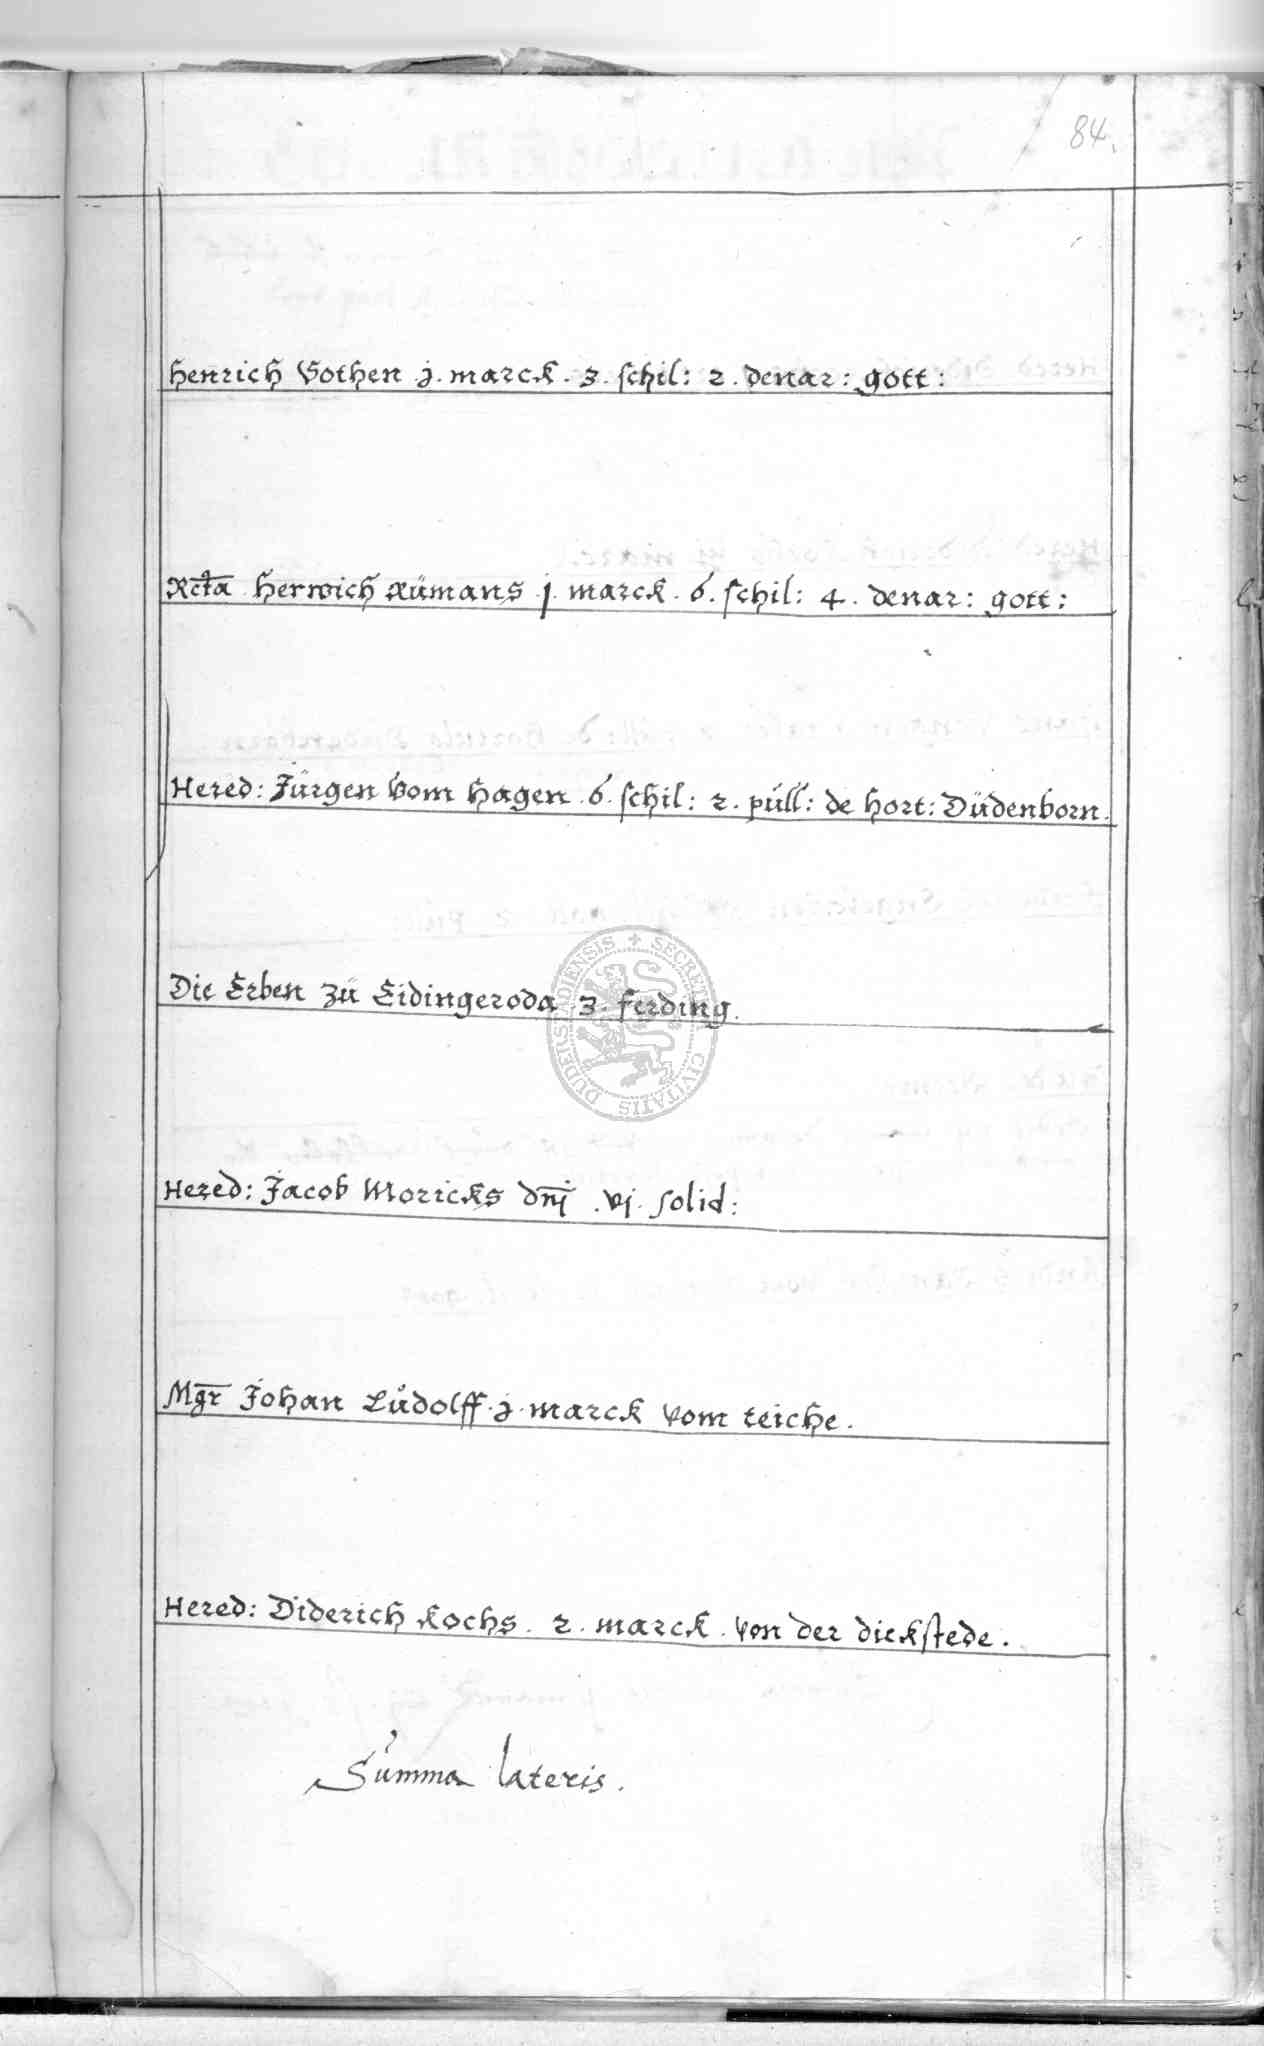 84.
Henrich Vothen .j. marck. 3. schil: 2. denar: gott:
Rcta Herwich Rümans .j. marck. 6. schil: 4. denar: gott:
Hered: Jürgen Vom Hagen. 6. schil: 2. püll: de hort: Düdenborn.
Die Erben zü Eidingeroda 3. ferding.
SECRETUM CIVITATIS DUDERSTADIENSIS
Hered: Jacob Moricks dnj .vj. solid:
Mgr Johan Lůdolff .j. marck vom teiche.
Hered: Diderich Kochs. 2. marck. von der dickstede.
Sůmma lateris.